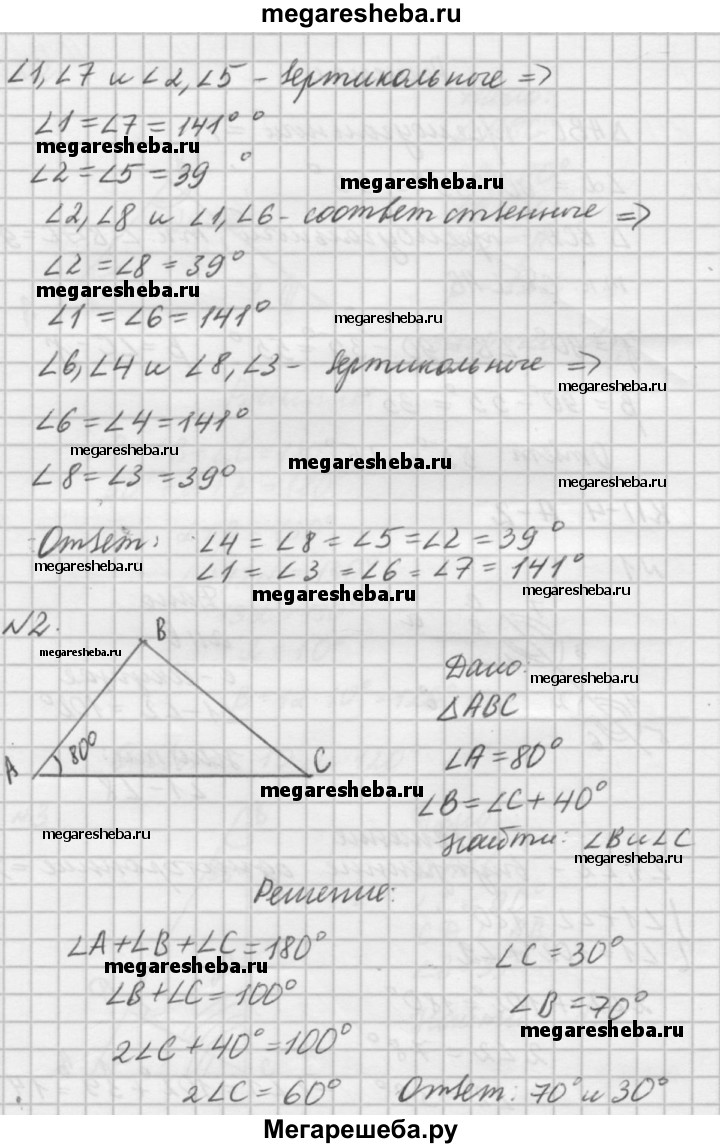 megaresheba.ru
∠1, ∠7 и ∠2, ∠5 - вертикольные =>
∠1 = ∠7 = 141° °
megaresheba.ru
∠2 = ∠5 = 39 °
megaresheba.ru
∠2, ∠8 и ∠1, ∠6 - соответственные =>
∠2 = ∠8 = 39°
megaresheba.ru
∠1 = ∠6 = 141°
megaresheba.ru
∠6, ∠4 и ∠8, ∠3 - вертикольные =>
megaresheba.ru
∠6 = ∠4 = 141°
megaresheba.ru
megaresheba.ru
∠8 = ∠3 = 39°
Ответ: ∠4 = ∠8 = ∠5 = ∠2 = 39°
megaresheba.ru
∠1 = ∠3 = ∠6 = ∠7 = 141°
megaresheba.ru
megaresheba.ru
№2.
B
megaresheba.ru
Дано:
megaresheba.ru
△ABC
80°
A
C
∠A = 80°
megaresheba.ru
∠B = ∠C + 40°
megaresheba.ru
Найти: ∠B и ∠C
megaresheba.ru
Решение:
∠A + ∠B + ∠C = 180°
megaresheba.ru
∠B + ∠C = 100°
2∠C + 40° = 100°
2∠C = 60°
∠C = 30°
∠B = 70°
megaresheba.ru
Ответ: 70° и 30°
Мегарешеба.ру